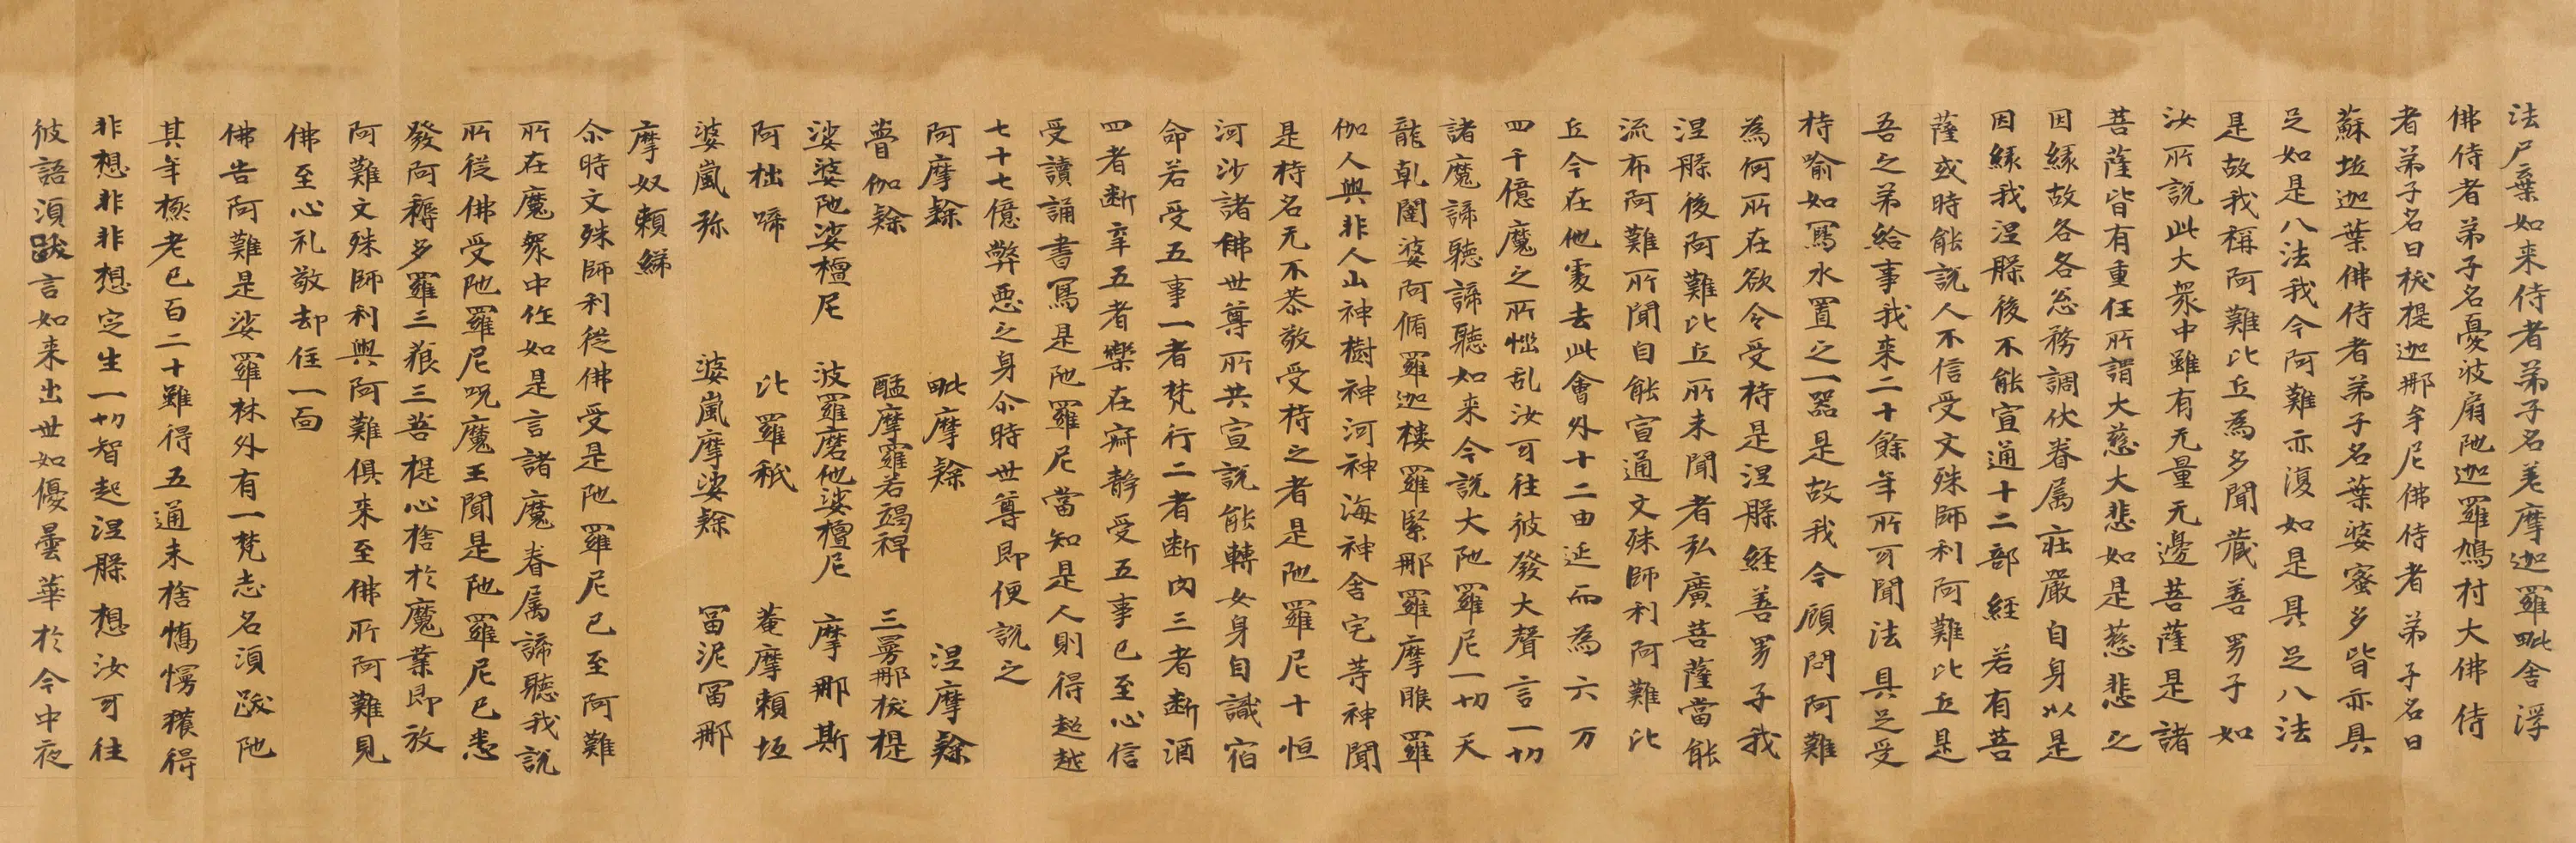 法尸棄如来侍者弟子名差摩迦羅毗舍浮
佛侍者弟子名憂波扇陁迦羅鳩村大佛侍
者弟子名曰柭提迦那牟尼佛侍者弟子名曰
蘇坻迦葉佛侍者弟子名葉婆蜜多皆亦具
足如是八法我今阿難亦復如是具足八法
是故我稱阿難比丘為多聞藏善男子如
汝所說此大衆中雖有无量无邊菩薩是諸
菩薩皆有重任所謂大慈大悲如是慈悲之
因縁故各各怱務調伏眷属莊嚴自身以是
因縁我涅槃後不能宣通十二部經若有菩
薩或時能說人不信受文殊師利阿難比丘是
吾之弟給事我来二十餘年所可聞法具足受
持喻如寫水置之一器是故我今顧問阿難
為何所在欲令受持是涅槃経善男子我
涅槃後阿難比丘所未聞者弘廣菩薩當能
流布阿難所聞自能宣通文殊師利阿難比
丘今在他處去此會外十二由延而為六万
四千億魔之所惱乱汝可往彼發大聲言一切
諸魔諦聽諦聽如来今說大陁羅尼一切天
龍乹闥婆阿脩羅迦樓羅緊那羅摩睺羅
伽人與非人山神樹神河神海神舍宅等神聞
是持名无不恭敬受持之者是陁羅尼十恒
河沙諸佛世尊所共宣說能轉女身自識宿
命若受五事一者梵行二者断肉三者断酒
四者断辛五者樂在寂静受五事已至心信
受讀誦書寫是陁羅尼當知是人則得超越
七十七億弊惡之身尒時世尊即便說之
阿摩隸 毗摩隸 涅摩隸
瞢伽隸 醯摩羅若竭稗 三曼那柭提
娑婆陁娑檀尼 波羅磨他娑檀尼 摩那斯
阿柮啼 比羅秖 菴摩賴坻
婆嵐弥 婆嵐摩娑隸 冨泥冨那
摩奴賴綈
尒時文殊師利從佛受是陁羅尼已至阿難
所在魔衆中作如是言諸魔眷属諦聽我說
所從佛受陁羅尼呪魔王聞是陁羅尼已悉
發阿耨多羅三藐三菩提心捨於魔業即放
阿難文殊師利與阿難俱来至佛所阿難見
佛至心礼敬却住一面
佛告阿難是娑羅林外有一梵志名湏跋陁
其年極老已百二十雖得五通未捨憍慢獲得
非想非非想定生一切智起涅槃想汝可往
彼語湏跋言如来出世如優曇華於今中夜